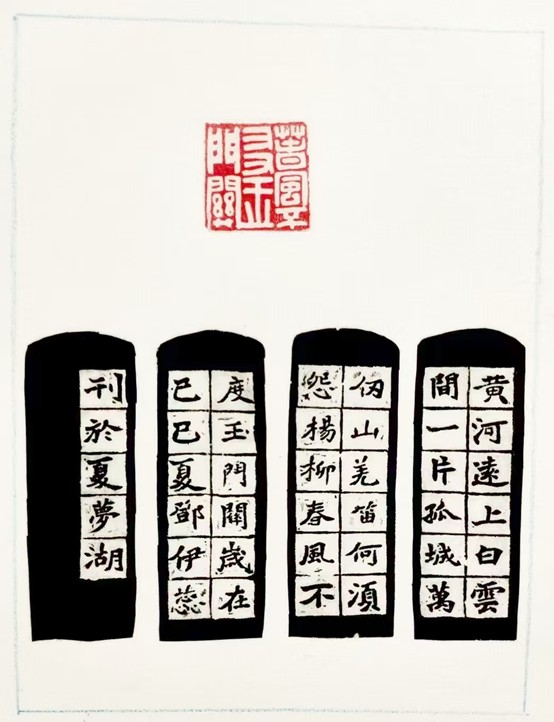 春風不
度玉
門關
黃河遠上白雲
間一片孤城萬
仞山羌笛何須
怨楊柳春風不
度玉門關歲在
己巳夏鄧伊蕊
刊於夏夢湖